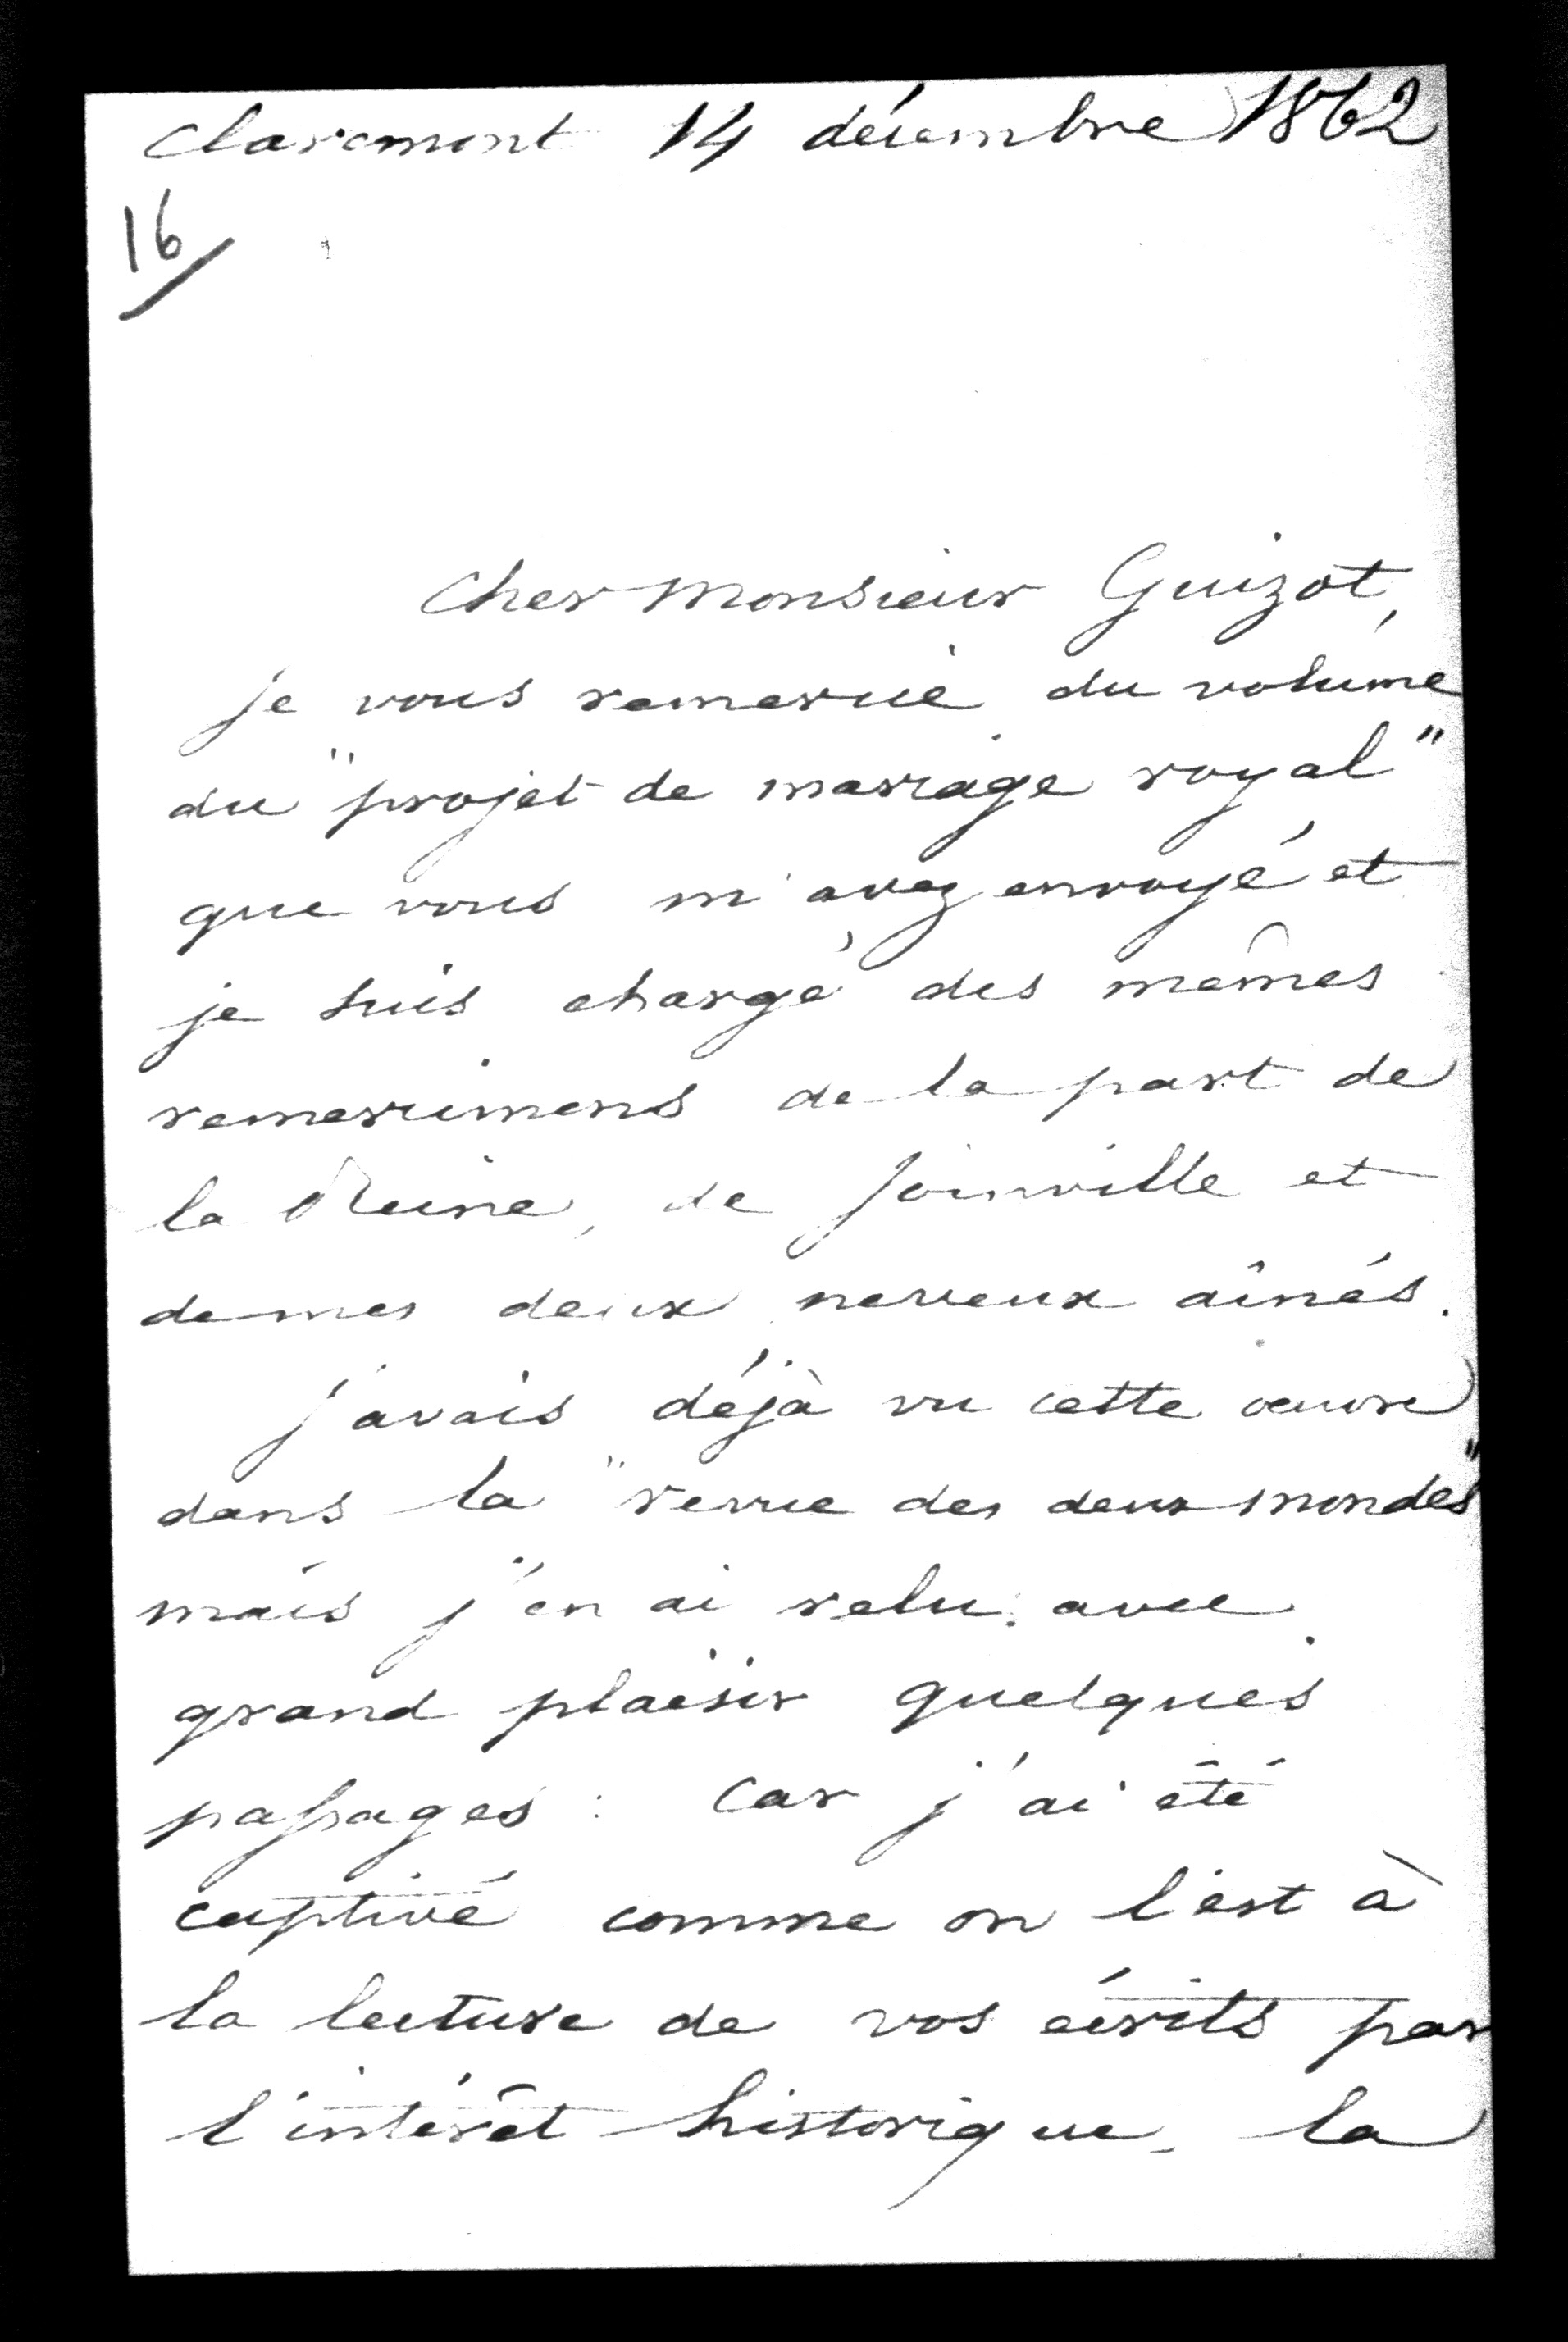 Claremont 14 décembre 1862
16
Cher Monsieur Guizot,
je vous remercie du volume
du "projet de mariage royal"
que vous m'avez envoyé et
je suis chargé des mêmes
remercimens de la part de
la Reine, de Joinville et
de mes deux neveux aînés.
j'avais déjà vu cette œuvre
dans la "revue des deux mondes"
mais j'en ai relu avec
grand plaisir quelques
passages : car j'ai été
captivé comme on l'est à
la lecture de vos écrits par
l'intérêt historique, la